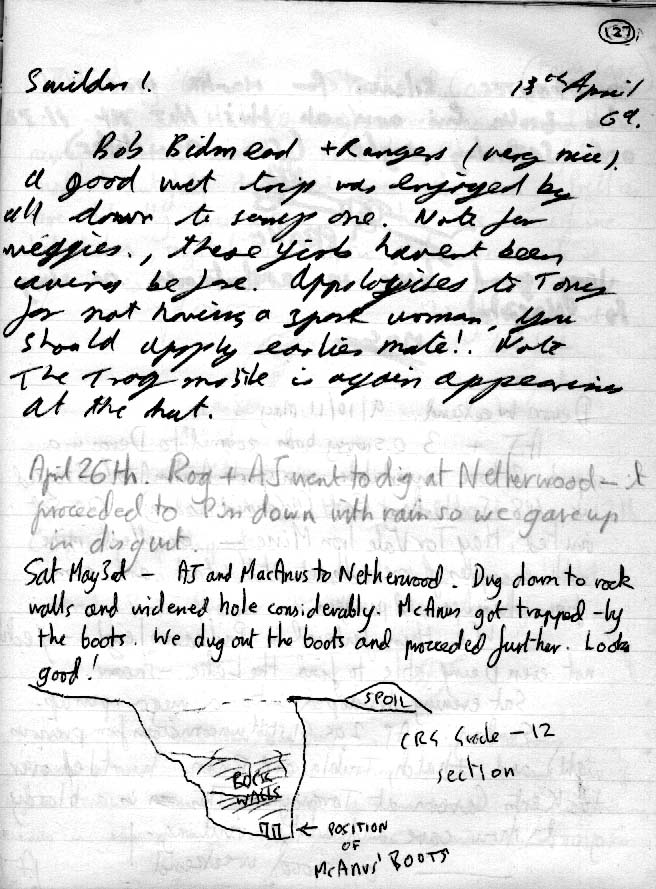 127
Swildons!. 13th April
69.
Bob Bidmead + Rangers (very nice).
A good wet trip was enjoyed by
all down to sump one. Note for
veggies., these girls havent been
caving before. Appologises to Tony
for not having a spare woman, you
should apply earlier mate!. Note
The Trog mobile is again appearing
at the hut.
April 26th. Rog + AJ went to dig at Netherwood - it
proceeded to Pin down with rain so we gave up
in disgust.
Sat May 3rd - AJ and MacAnus to Netherwood. Dug down to rock
walls and widened hole considerably. McAnus got trapped - by
the boots. We dug out the boots and proceeded further. Looks
good!
SPOIL
CRG Grade - 12
section
ROCK
WALLS
← POSITION
OF
McANUS' BOOTS